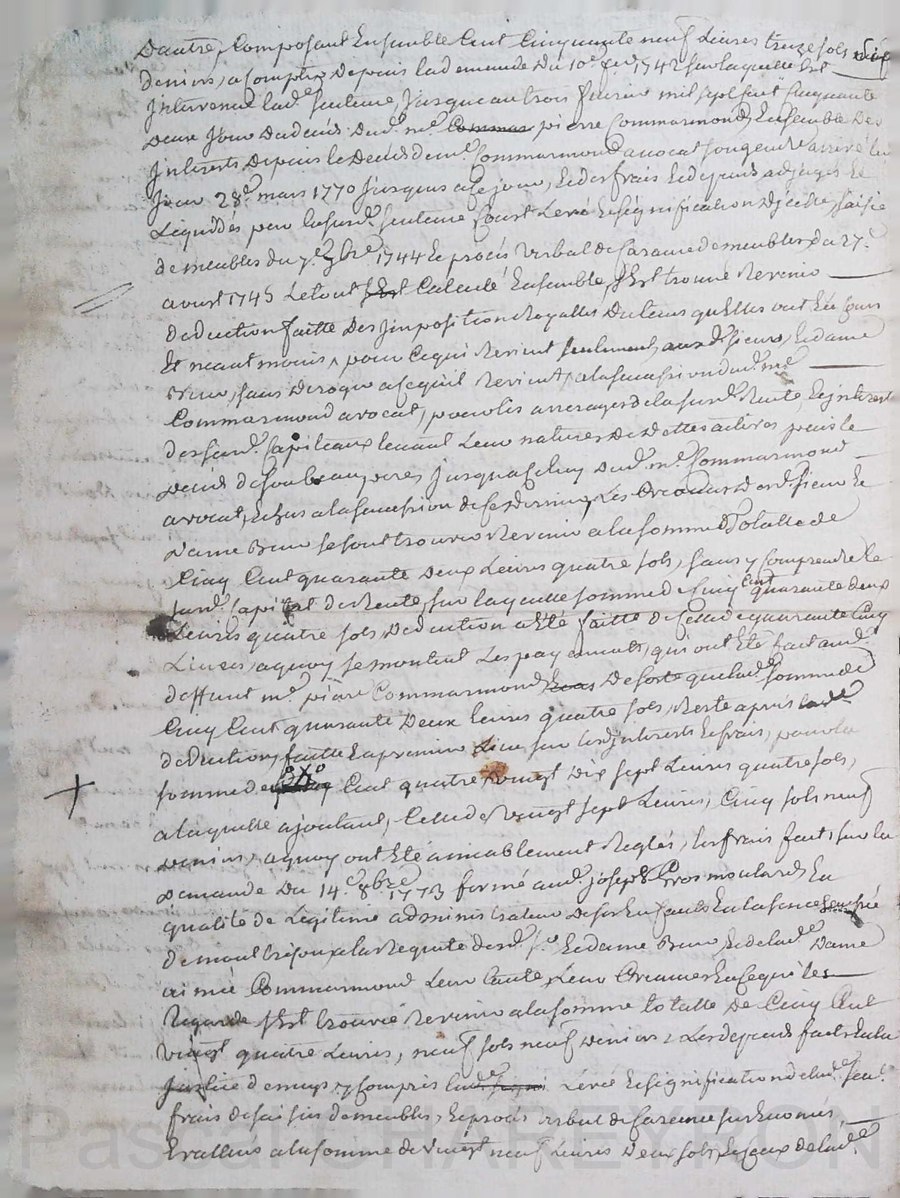 D'autre, Composant Ensemble Cent Cinquante neuf Livres treze sols dix
deniers, a Compter Depuis lad. demande Du 10e 1742 sur laquelle Est
Intervenue lad.e sentence, Jusque au trois fevrier mil sept Cent Cinquante
Deux Jour Du decés Dud. me. pierre Commarmond, Ensemble Des
Interests Depuis le Deces de me. Commarmond avocat son gendre arrivé le
Jour 28e. mars 1770 Jusques a ce jour, Et des frais Et depends adjugés Et
Liquidés par la susd.e sentence Coust Levée Et signification D'jcelle, saisie
de meubles du 7e. 7bre. 1744 Et procés verbal de Carance de meubles du 27e.
avoust 1745 Le tout Calculé Ensemble s'Est trouvé Revenir
deduction faitte Des Impositions Royalles Du temps qu'elles ont Eu Cours
Et neant moins, pour Ce qui Revient seulement aux d. sieur, Et dame
Brun, sans Deroger a Ce qu'il Revient a la succession dud. me.
Commarmond avocat, pour les arrerages de la susd.e Rente, Et jnterest
des susd. Capitaux tenant Leur nature De Dettes actives, puis le
Decés de son beaupere, Jusqu'a Celuy Dud. me. Commarmond
avocat, Echus a la succession de Ce Dernier, Les Creances Desd. sieur Et
Dame Brun se sont trouvées Revenir a la somme totalle de
Cinq Cent quarante Deux Livres quatre sols, sans y Comprendre le
susd. Capital de Rente, sur laquelle somme de Cinq Cent quarante deux
Livres quatre sols, Deduction a Eté faitte de Celle de quarante Cinq
Livres, a quoy se montent Les payements, qui ont Eté fait aud.
deffunt me. pierre Commarmond De sorte que lad.e somme de
Cinq Cent quarante Deux livres quatre sols, Reste aprés lad.e
deduction, faitte En premier Lieu sur les Interests Et frais, pour la
somme de Cent quatre vingt Dix sept Livres quatre sols,
a laquelle ajoutant, Celle de vingt sept Livres, Cinq sols neuf
Deniers, a quoy ont Eté amiablement Reglés, les frais faits sur la
Demande Du 14e. 8bre. 1773 formé aud. joseph Gros moulard En
qualité de Legitime administrateur De ses Enfants En la
de a la Requette desd. sr. Et dame Brun, Et de lad.e Dame
aimée Commarmond Leur tante, Leur Creance En Ce qui les
Regarde s'Est trouvée Revenir a la somme totalle De Cinq Cent
vingt quatre Livres, neuf sols neuf Deniers Les depends faits En la
Justice de y Compris Levée Et signification de lad.e sent.
frais de saisies de meubles, Et procés verbal de Carence
Evallués a la somme de vingt neuf Livres Deux sols, Et Ceux de lad.e
Pascal CHAREYRON